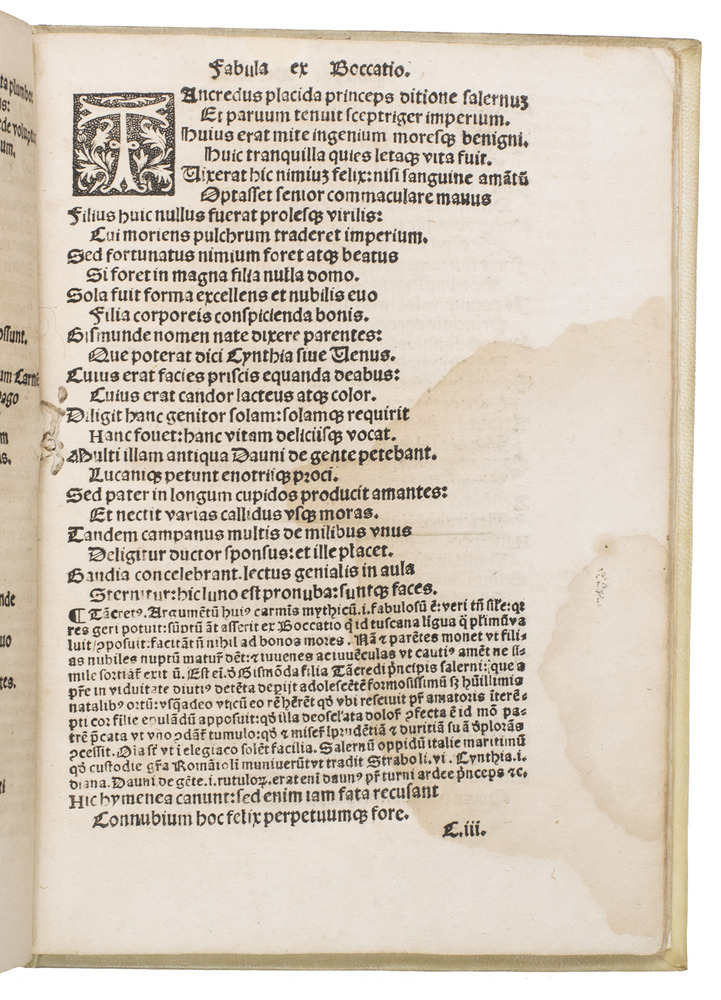 ta plumbet
us:
de volupta
um.
ossunt.
um Carni
pago
m
us.
nde
quo
tes.
ti
Fabula ex Boccatio.
TAncredus placida princeps ditione salernuʒ
Et paruum tenuit sceptriger imperium.
Huius erat mite ingenium moresqꝫ benigni.
Huic tranquilla quies letaqꝫ vita fuit.
Uixerat hic nimiuʒ felix: nisi sanguine amãtũ
Optasset senior commaculare manus
Filius huic nullus fuerat prolesqꝫ virilis:
Cui moriens pulchrum traderet imperium.
Sed fortunatus nimium foret atqꝫ beatus
Si foret in magna filia nulla domo.
Sola fuit forma excellens et nubilis euo
Filia corporeis conspicienda bonis.
Gismunde nomen nate dixere parentes:
Que poterat dici Cynthia siue Uenus.
Cuius erat facies priscis equanda deabus:
Cuius erat candor lacteus atqꝫ color.
Diligit hanc genitor solam: solamqꝫ requirit
Hanc fouet: hanc vitam deliciisqꝫ vocat.
Multi illam antiqua Dauni de gente petebant.
Lucaniqꝫ petunt enotriiqꝫ proci.
Sed pater in longum cupidos producit amantes:
Et nectit varias callidus vsqꝫ moras.
Tandem campanus multis de milibus vnus
Deligitur ductor sponsus: et ille placet.
Gaudia concelebrant. lectus genialis in aula
Sternitur: hic Iuno est pronuba: suntqꝫ faces.
¶ Tãcret⁹. Argumẽtũ hui⁹ carmĩs mythicũ .i. fabulosũ ẽ: veri tñ sĩle: qꝛ
res geri potuit: sũptũ ãt asserit ex Boccatio q̇ id tuscana lĩgua
luit ꝓposuit: facitãt ñ nihil ad bonos mores. Nã ⁊ parẽtes monet vt fili-
as nubiles nuptũ matur̃ dẽt: ⁊ iuuenes ac iuuẽculas vt cauti⁹ amẽt ne si-
mile sortiãt̃ exit ũ. Est eĩ. Gismõda filia Tãcredi pñcipis salerni: que a
pr̃e in viduitate diuti⁹ detẽta depijt adolescẽtẽ formosissimũ sʒ hũillimis
natalib⁹ ortũ: vsqꝫadeo vt cũ eo rẽ hẽrẽt ꝙ vbi resciuit pr̃ amatoris ĩterẽ-
pti cor filie epulãdũ apposuit: illa deoscl'ata ꝓfecta ẽ id mõ pa-
trẽ p̃cata vt vno tumulo: ⁊ ĩprudẽtiã ⁊ duritiã suã
ꝓcessit. vt i elegiaco solẽt facilia. Salernũ oppidũ italie maritimũ
qď custodie gr̃a Romãi oli muniuerũt vt tradit Strabo li. vi. Cynthia .i.
diana. Dauni de gẽte .i. rutuloꝝ. erat eni daun⁹ pr̃ turni ardee pñceps ⁊c.
Hic hymenea canunt: sed enim iam fata recusant
Connubium hoc felix perpetuumqꝫ fore.
C.iii.